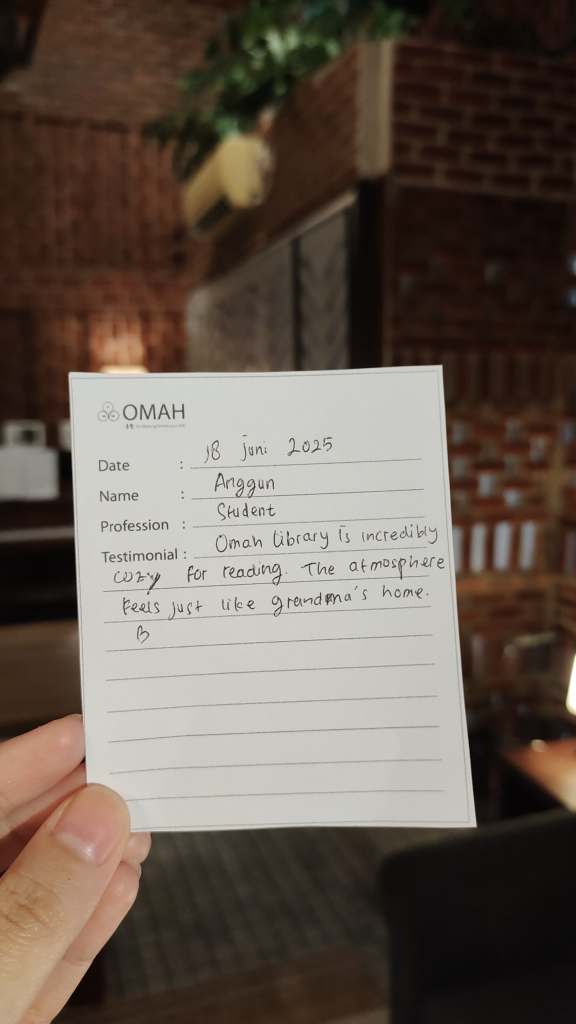 OMAH
Date : 18 juni 2025
Name : Anggun
Profession : Student
Testimonial : Omah library is incredibly
cozy for reading. The atmosphere
feels just like grandma's home.